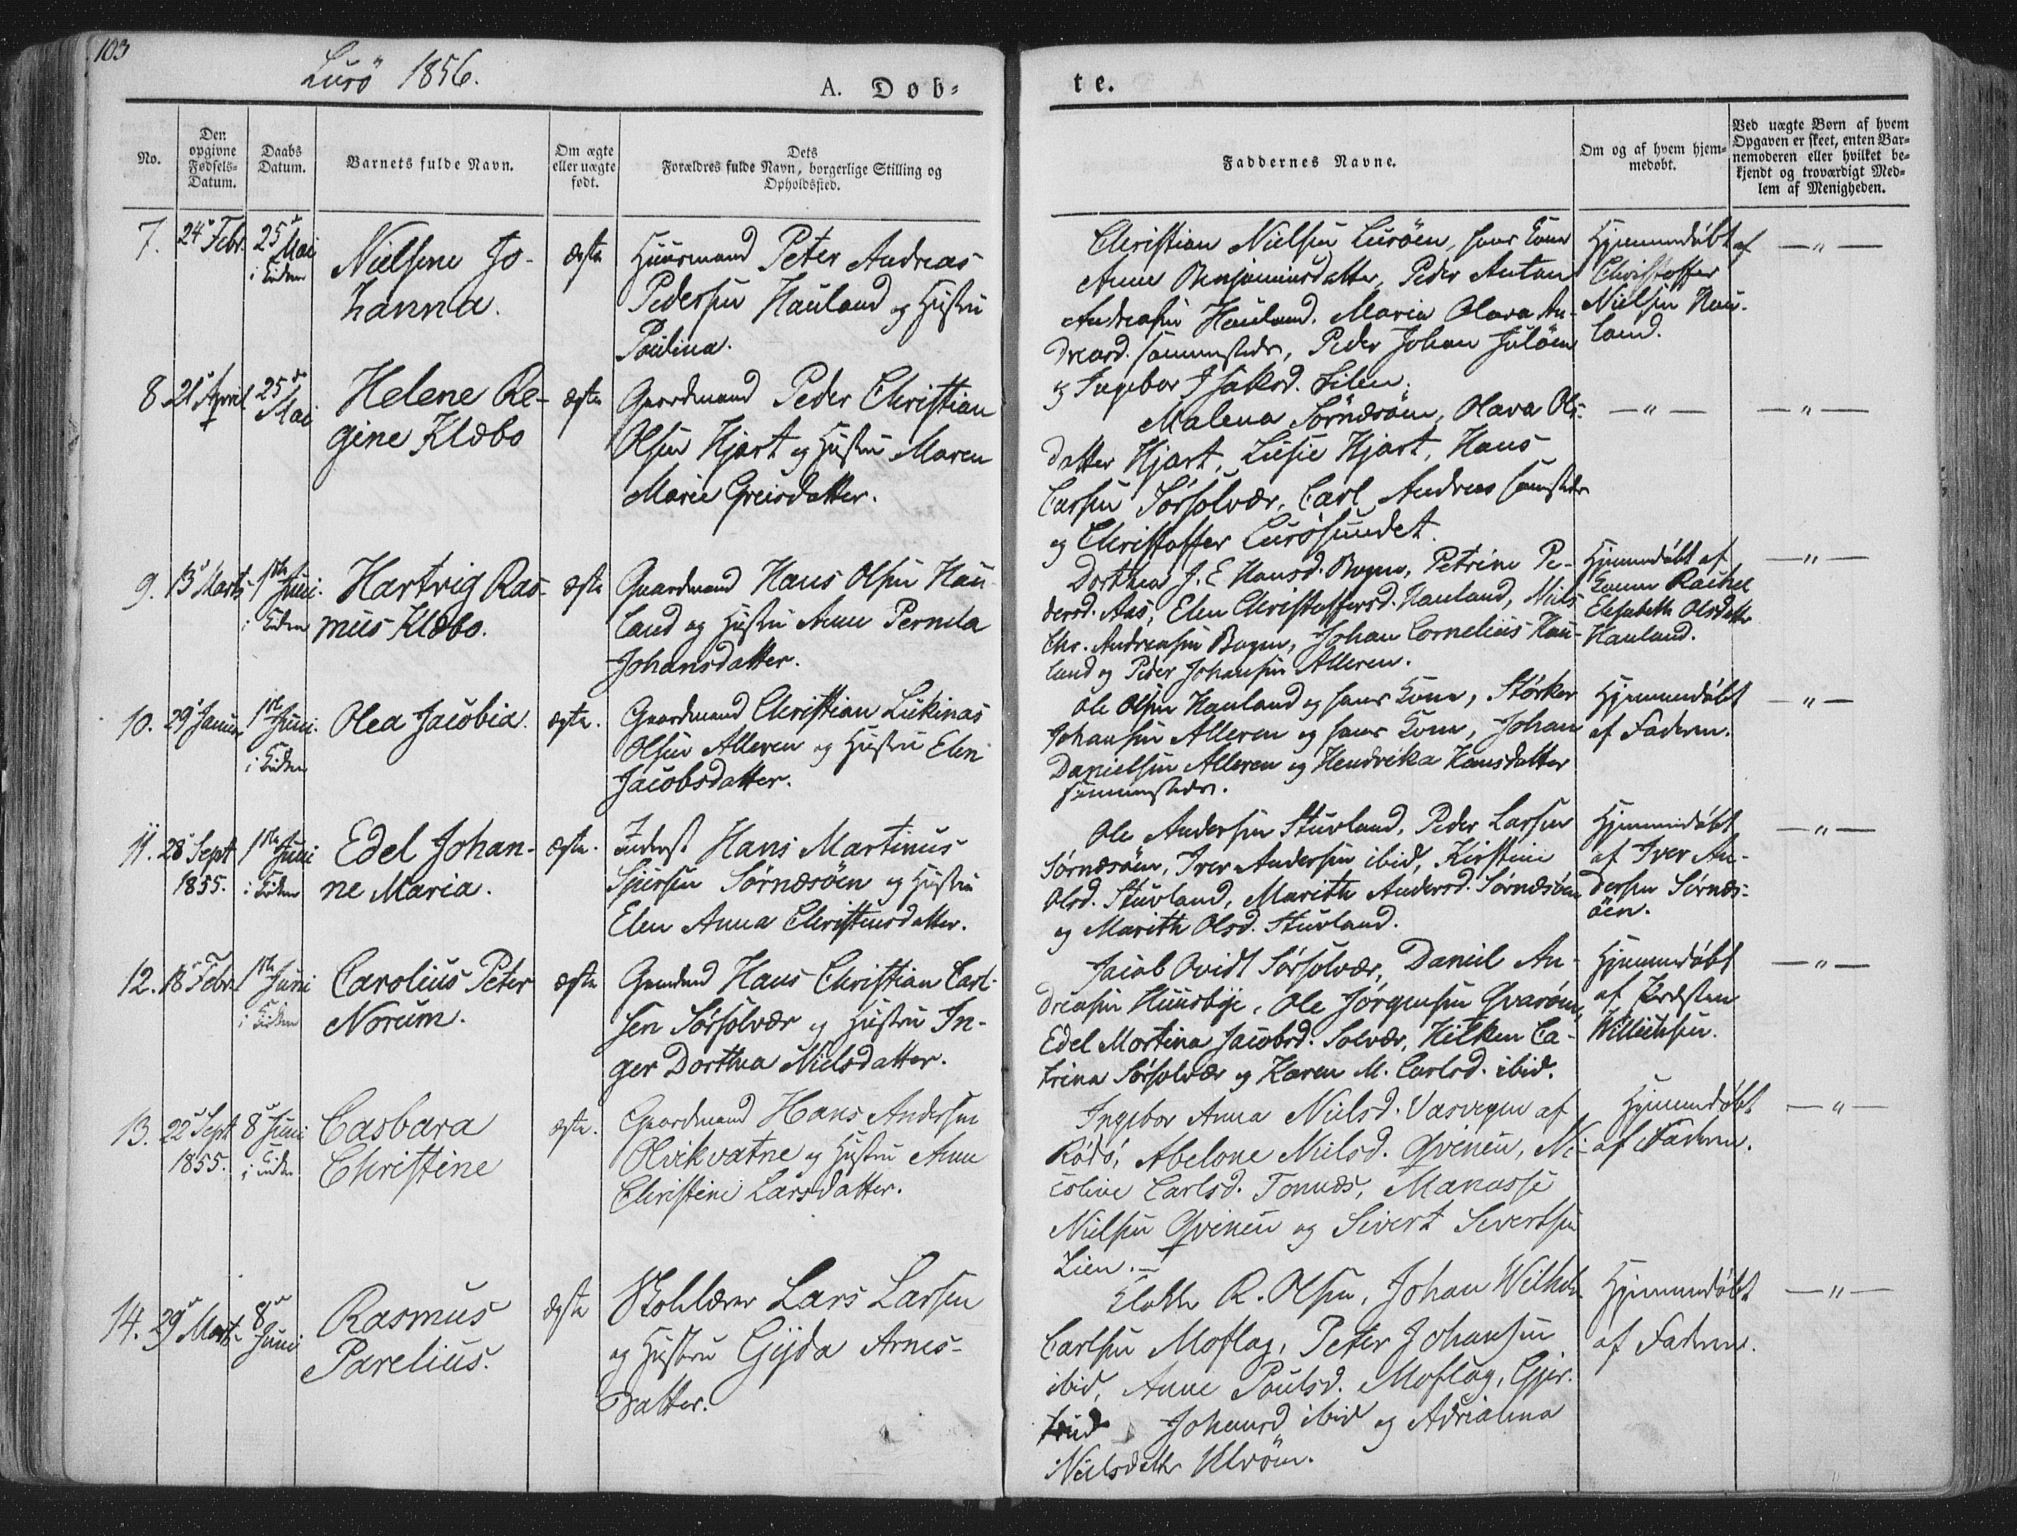 103
Lurö 1856.
A. Døb-
te.
No.
Den opgivne Fødsels-Datum.
Daabs Datum.
Barnets fulde Navn.
Om ægte eller uægte født.
Dets
Forældres fulde Navn, borgerlige Stilling og
Opholdssted.
Faddernes Navne.
Om og af hvem hjem-
medøbt.
Ved uægte Børn af hvem
Opgaven er skeet, enten Bar-
nemoderen eller hvilket be-
kjendt og troværdigt Med-
lem af Menigheden.
7. 24 Febr. 25 Mai
i Kirken
Nielsine Jo-
hanna.
ægte
Huusmand Peter Andreas
Pedersen Hauland og Hustru
Paulina.
Christian Nielsen Luröen, hans Kone
Anne Benjaminsdatter, Peder Antan
Andreasen Hauland, Maria Olava An-
dreasd. sammesteds, Peder Johan
og Ingebor Isaksd. Lilen.
Hjemmedøbt af
Christoffer
Nielsen Hau-
land.
— " —
8. 21 April 25 Mai
Helene Re-
gine Klæbo
ægte
Gaardmand Peder Christian
Olsen Hjart og Hustru Maren
Marie Greisdatter.
Malena Sörnæsöen, Olava Ols-
datter Hjart, Lusie Hjart, Hans
Larsen Sörsolvær, Carl Andreas sammesteds
og Christoffer Lurösundet.
— " —
— " —
9. 13 Marts 1ste Juni
i Kirken
Hartvig Ras-
mus Klæbo.
ægte
Gaardmand Hans Olsen Hau-
land og Hustru Anne Pernela
Johansdatter.
Dorthea J. E. Hansd. Bogen, Petrine Pe-
dersd. Aas, Elen Christoffersd. Hauland, Niels
Chr. Andreasen Bogen, Johan Cornelius Hau-
land og Peder Johansen Alleren.
Hjemmedøbt af
Konen Rachel
Elisabeth Olsdatter
Hauland.
— " —
10. 29 Januar 1ste Juni.
i Kirken
Olea Jacobia.
ægte.
Gaardmand Christian Lukinas
Olsen Alleren og Hustru Elen
Jacobsdatter.
Ole Olsen Hauland og hans Kone, Störker
Johansen Alleren og hans Kone, Johan
Danielsen Alleren og Hendrika Hansdatter
sammesteds.
Hjemmedøbt
af Faderen.
— " —
11. 28 Sept 1ste Juni
1855. i Kirken
Edel Johan-
ne Maria.
ægte.
Inderst Hans Martinus
Sörnæsöen og Hustru
Elen Anna Christensdatter.
Ole Andersen Stuvland, Peder Larsen
Sörnæsöen, Iver Andersen ibid, Kirstine
Olsd. Stuvland, Marith Andersd. Sörnæsöen
og Marith Olsd. Stuvland.
Hjemmedøbt
af Iver An-
dersen Sörnæs-
öen.
— " —
12. 18 Febr 1ste Juni
i Kirken
Carolius Peter
Norum.
ægte
Gaardmand Hans Christian Carl-
sen Sörsolvær og Hustru In-
ger Dorthea Nielsdatter.
Jacob Ovidt Sörsolvær, Daniel An-
dreasen Huusbye, Ole Jörgensen Qvaröen,
Edel Martina Jacobsd. Solvær, Hilken Ca-
trina Sörsolvær og Karen M. Carlsd. ibid.
Hjemmedøbt
af Præsten
Willichsen.
— " —
13. 22 Sept 8 Juni
1855. i Kirken
Casbara
Christine
ægte.
Gaardmand Hans Andersen
Olvikvatne og Hustru Anne
Christine Larsdatter.
Ingebor Anna Nielsd. Vasvegen af
Rödö, Abelone Nielsd. Qvineen, Ni-
coline Carlsd. Tonnæs, Manasse
Nielsen Qvineen og Sivert Sivertsen
Lien.
Hjemmedøbt
af Faderen.
— " —
14. 29 Marts 8 Juni
Rasmus
Parelius.
ægte
Skolelærer Lars Larsen
og Hustru Gjyda Arnes-
datter.
Klokker R. Olsen, Johan Wilhelm
Carlsen Moflag, Peter Johansen
ibid, Anne Paulsd. Moflag, Gjer-
trud Johansd. ibid og Adrialina
Nielsdatter Ulvöen.
Hjemmedøbt
af Faderen.
— " —